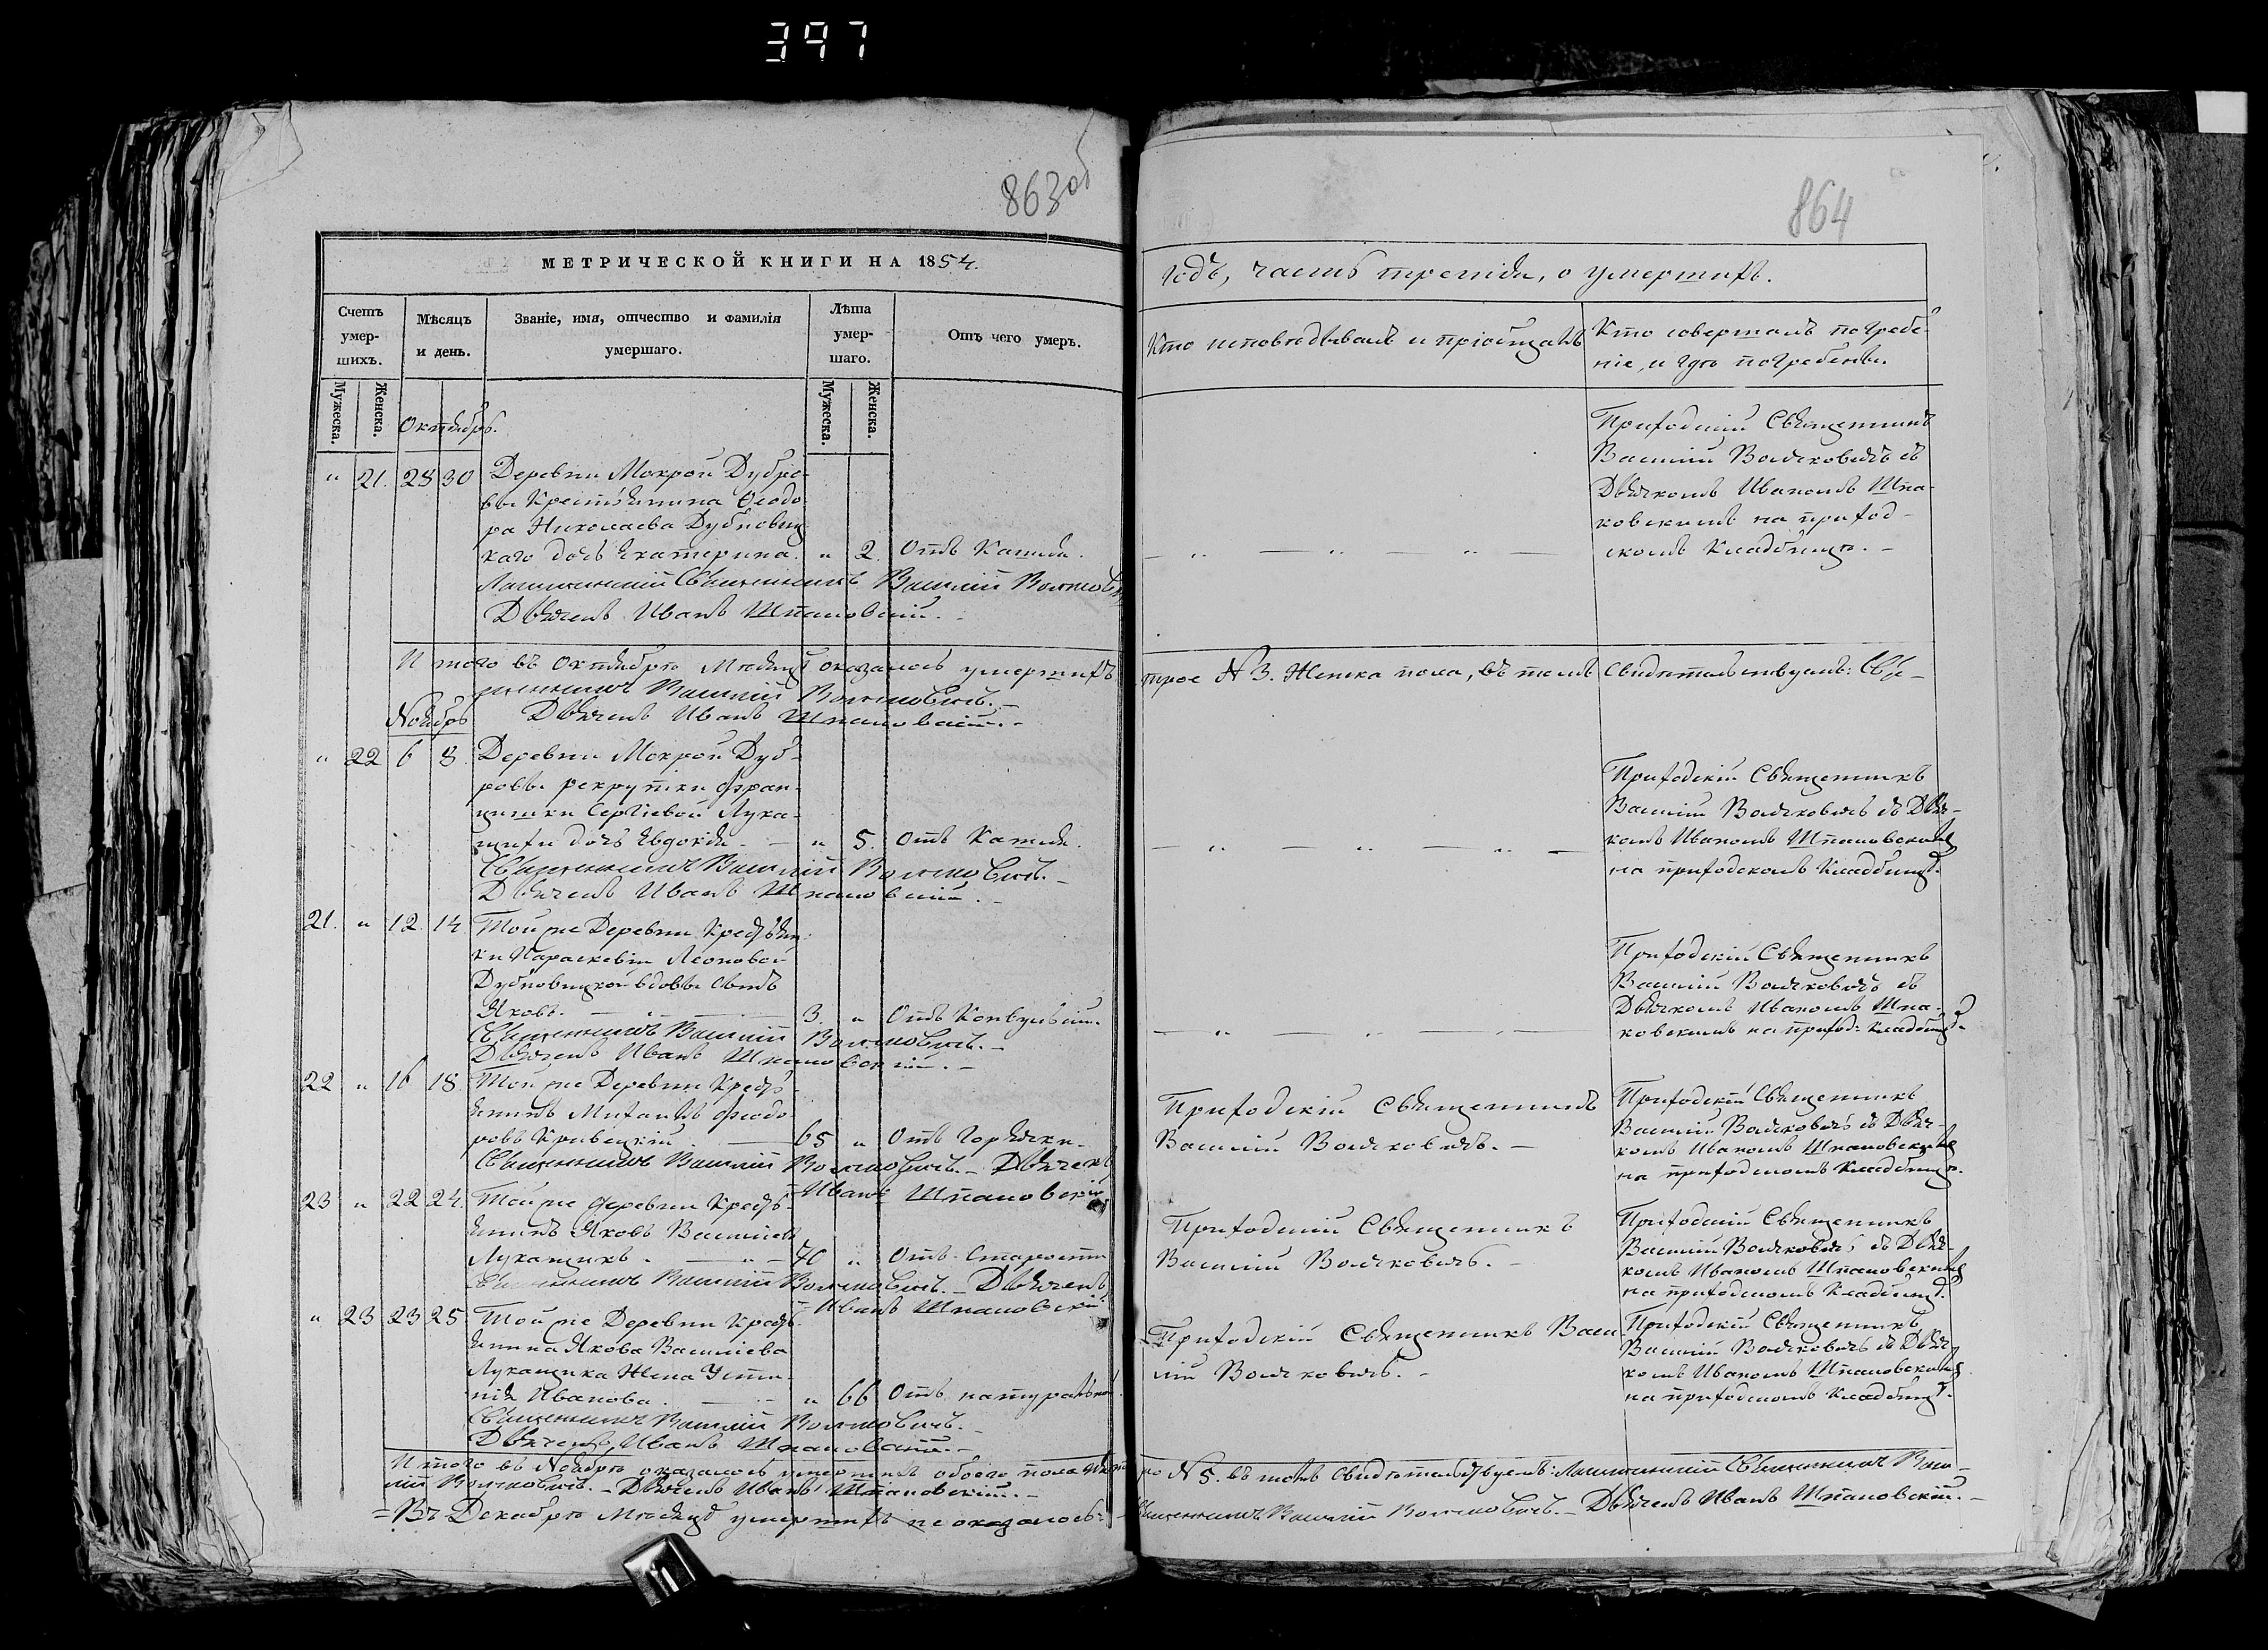 397
863об
МЕТРИЧЕСКОЙ КНИГИ НА 1854.
Счетъ умер-шихъ.
Мѣсяцъ и день.
Званіе, имя, отчество и фамилія умершаго.
Лѣта умер-шаго.
Отъ чего умеръ.
Мужеска.
Женска.
Мужеска.
Женска.
Октябрь.
" 21. 28 30 Деревни Мокрой Дубро-
вы Крестьянина Ѳеодо-
ра Николаева Дубновиц
каго дочь Екатерина. " 2. Отъ Кашля.
Священникъ Василій
Дьячекъ Иванъ Шпаковскій.
Итого въ Октябрѣ Мѣсяцѣ оказалось умершихъ
Василій
Ноябрь Дьячекъ Иванъ Шпаковскій.
" 22 6 8. Деревни Мокрой Дуб-
ровы рекрутки Фран-
цишки Сергіевой Лука-
щихи дочь Евдокія. — " 5. Отъ Кашля.
Священникъ Василій
Дьячекъ Иванъ Шпаковскій.
21. " 12. 14. Той же Деревни Крестьян
ки Параскевіи Леоновой
Дубновицкой вдовы сынъ
Яковъ. — " — 3. " Отъ Конвульсіи.
Священникъ Василій
Дьячекъ Иванъ Шпаковскій.
22 " 16 18. Той же Деревни Кресть-
янинъ Михаилъ Феодо
ровъ Кривецкій. — 65 " Отъ Горячки.
Священникъ Василій Дьячекъ
Иванъ Шпаковскій
23 " 22 24. Той же деревни Кресть-
янинъ Яковъ Василіевъ
Лукащикъ. — " — 70 " Отъ Старости
Священникъ Василій Дьячекъ
Иванъ Шпаковскій
" 23 23 25 Той же Деревни Кресть-
янина Якова Василіева
Лукащика Жена Усти-
нія Иванова. — " 66 Отъ натуральной.
Священникъ Василій
Дьячекъ Иванъ Шпаковскій.
Итого въ Ноябрѣ оказалось умершихъ обоего пола
Дьячекъ Иванъ Шпаковскій.
= Въ Декабрѣ Мѣсяцѣ умершихъ не оказалось:
864
годъ, часть третія, о умершихъ.
Кто исповѣдывалъ и пріобщалъ
Кто совершалъ погребе-
ніе, и гдѣ погребены.
Приходскій Священникъ
Василій Волчковичъ съ
Дьячкомъ Иваномъ Шпа-
ковскимъ на приход-
скомъ Кладбищѣ.
трое N 3. Женска пола, въ томъ Свидѣтельствуемъ: Свя-
Приходскій Священникъ
Василій Волчковичъ съ Дьяч-
комъ Иваномъ Шпаковскимъ
на приходскомъ Кладбищѣ.
Приходскій Священникъ
Василій Волчковичъ съ
Дьячкомъ Иваномъ Шпа-
ковскимъ на приход: кладбищѣ.
Приходскій Священникъ
Василій Волчковичъ.
Приходскій Священникъ
Василій Волчковичъ съ Дьяч-
комъ Иваномъ Шпаковскимъ
на приходскомъ Кладбищѣ.
Приходскій Священникъ
Василій Волчковичъ.
Приходскій Священникъ
Василій Волчковичъ съ Дьяч-
комъ Иваномъ Шпаковскимъ
на приходскомъ Кладбищѣ.
Приходскій Священникъ Васи-
лій Волчковичъ.
Приходскій Священникъ
Василій Волчковичъ съ Дьяч-
комъ Иваномъ Шпаковскимъ
на приходскомъ Кладбищѣ.
N 5. въ томъ Свидѣтельствуемъ: Священникъ Васи-
Василій Дьячекъ Иванъ Шпаковскій.